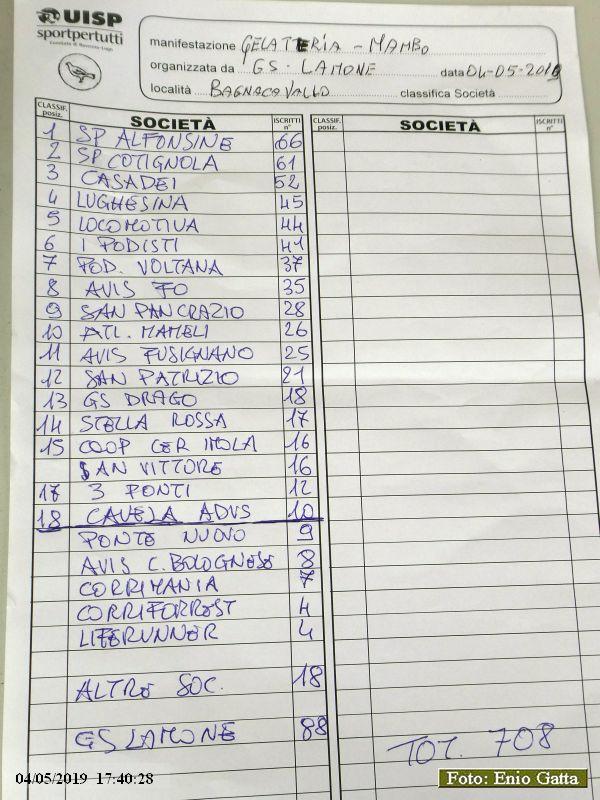 UISP
sportpertutti
Comitato di Ravenna-Lugo
manifestazione GELATERIA - MAMBO
organizzata da GS. LAMONE data 04-05-2019
località BAGNACAVALLO classifica Società
CLASSIF. posiz. SOCIETÀ ISCRITTI n° CLASSIF. posiz. SOCIETÀ ISCRITTI n°
1 SP ALFONSINE 66
2 SP COTIGNOLA 61
3 CASADEI 52
4 LUGHESINA 45
5 LOCOMOTIVA 44
6 I PODISTI 41
7 POD. VOLTANA 37
8 AVIS FO 35
9 SAN PANCRAZIO 28
10 ATL. MAMELI 26
11 AVIS FUSIGNANO 25
12 SAN PATRIZIO 21
13 GS DRAGO 18
14 STELLA ROSSA 17
15 COOP CER IMOLA 16
SAN VITTORE 16
17 3 PONTI 12
18 CAVEJA ADVS 10
PONTE NUOVO 9
AVIS C. BOLOGNESE 8
CORRIMANIA 7
CORRIFORREST 4
LIFERUNNER 4
ALTRE SOC. 18
GS LAMONE 88
TOT. 708
04/05/2019 17:40:28
Foto: Enio Gatta